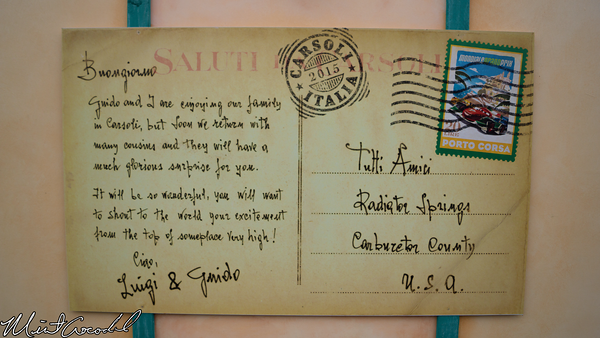 SALUTI DA CARSOLI
Buongiorno
Guido and I are enjoying our family
in Carsoli, but soon we return with
many cousins and they will have a
much glorious surprise for you.
It will be so wonderful, you will want
to shout to the world your excitement
from the top of someplace very high!
Ciao,
Luigi & Guido
CARSOLI
2015
ITALIA
PORTO CORSA
Tutti Amici
Radiator Springs
Carburetor County
U.S.A.